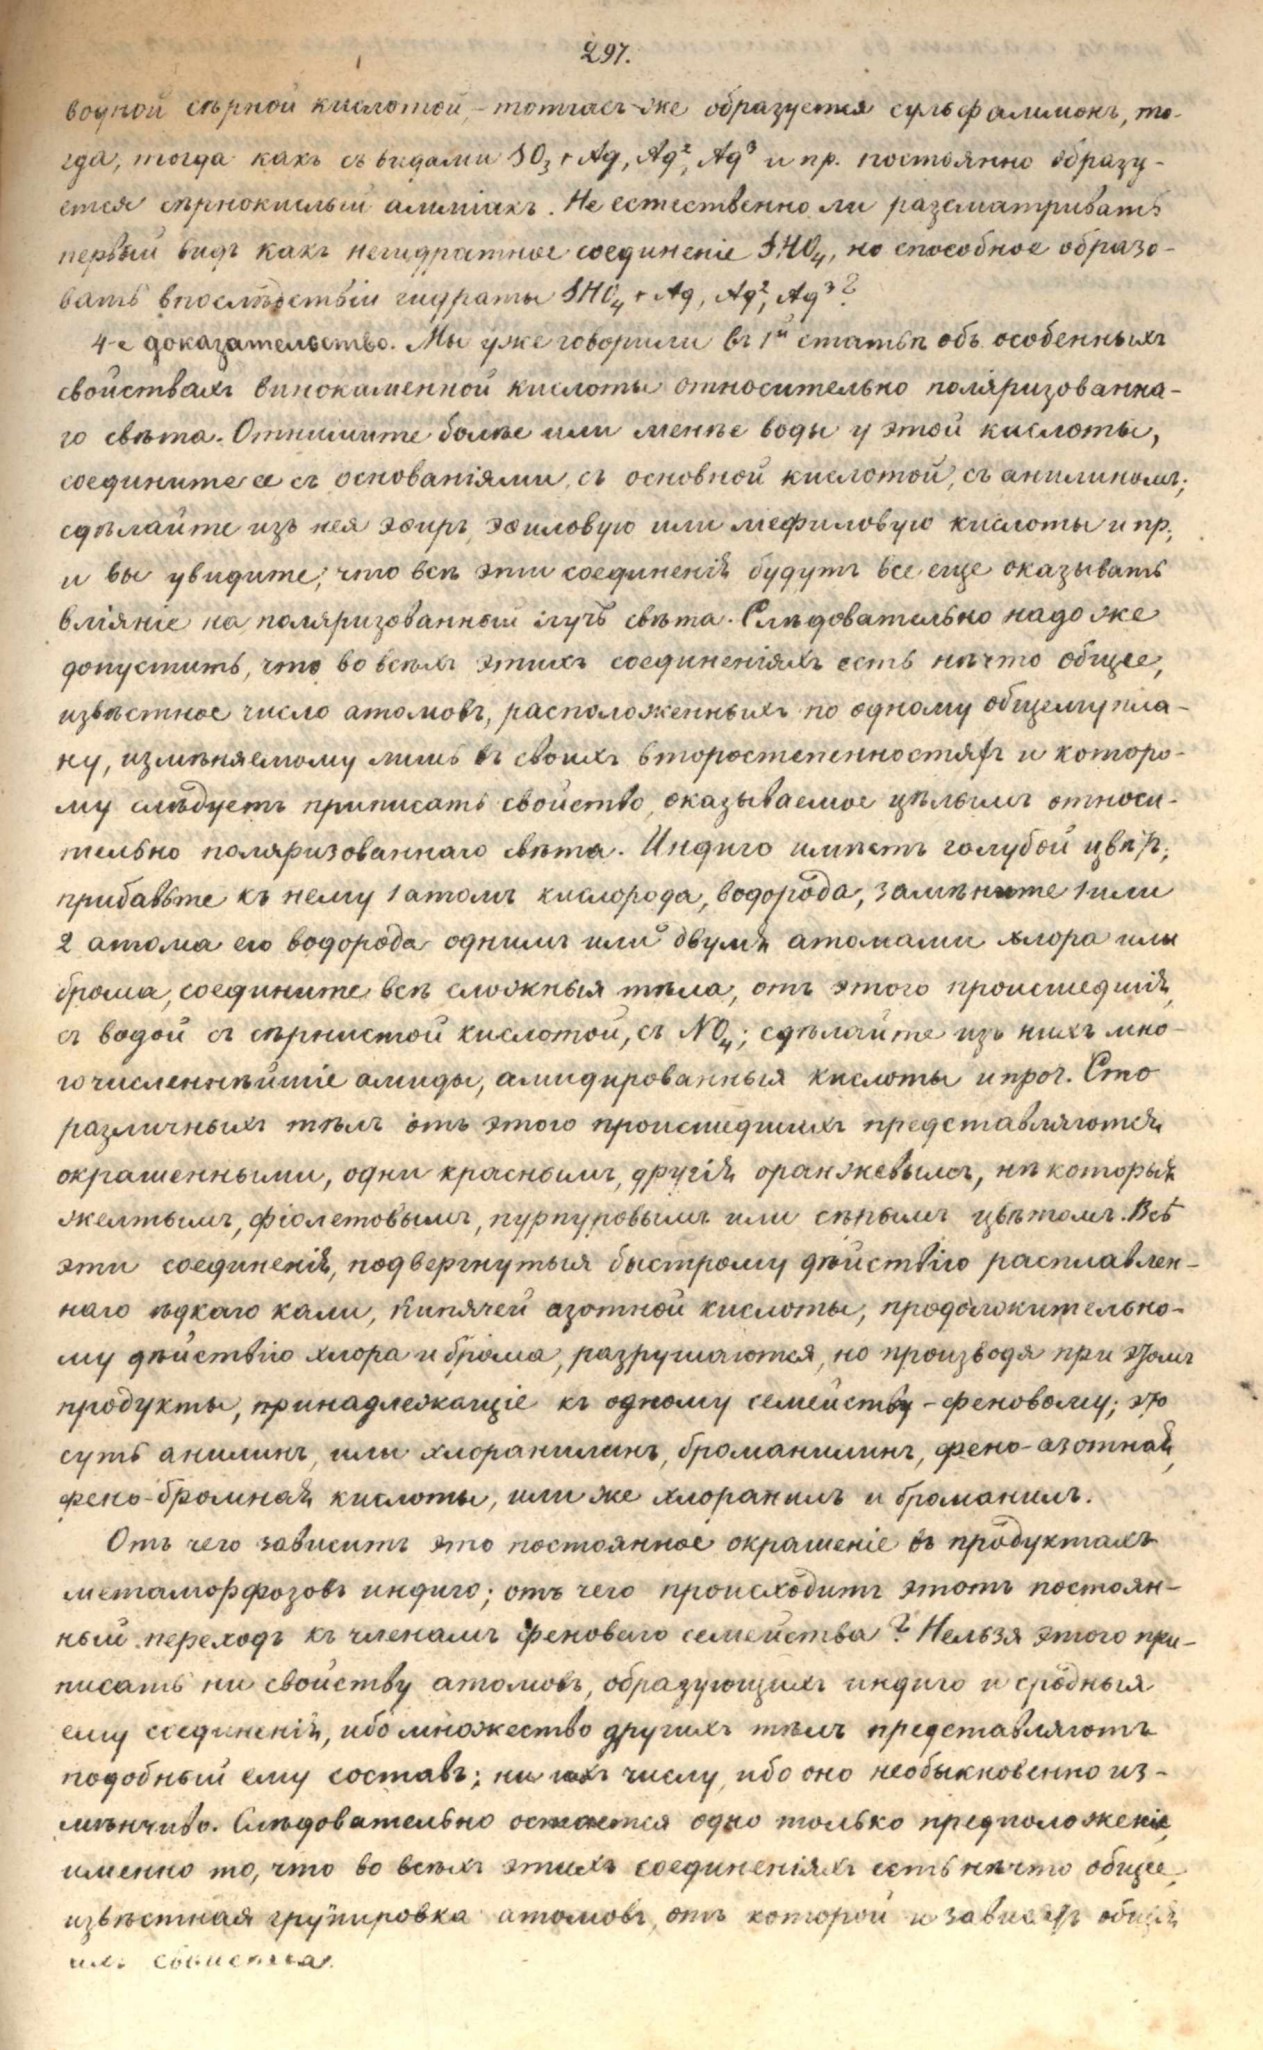 297.
водной сѣрной кислотой, – тотчасъ-же образуется сульфаммонъ, то-
гда, тогда какъ съ видами SO₃ + Aq, Aq², Aq³ и пр. постоянно образу-
ется сѣрнокислый амміакъ. Не естественно ли разсматривать
первый видъ какъ негидратное соединеніе SHO₄, но способное образо-
вать впослѣдствіи гидраты SHO₄ + Aq, Aq², Aq³?
4-е доказательство. Мы уже говорили въ 1й статьѣ объ особенныхъ
свойствахъ виннокаменной кислоты относительно поляризованна-
го свѣта. Отнимите болѣе или менѣе воды у этой кислоты,
соедините ее съ основаніями, съ основной кислотой, съ анилиномъ;
сдѣлайте изъ нея эѳиръ, эѳиловую или меѳиловую кислоты и пр.;
и вы увидите, что всѣ эти соединенія будутъ все еще оказывать
вліяніе на поляризованный лучъ свѣта. Слѣдовательно надо же
допустить, что во всѣхъ этихъ соединеніяхъ есть нѣчто общее,
извѣстное число атомовъ, расположенныхъ по одному общему пла-
ну, измѣняемому лишь въ своихъ второстепенностяхъ и которо-
му слѣдуетъ приписать свойство, оказываемое цѣлымъ относи-
тельно поляризованнаго свѣта. Индиго имѣетъ голубой цвѣтъ;
прибавьте къ нему 1 атомъ кислорода, водорода, замѣните 1 или
2 атома его водорода однимъ или двумя атомами хлора или
брома, соедините всѣ сложныя тѣла, отъ этого происшедшія,
съ водой съ сѣрнистой кислотой, съ NO₄; сдѣлайте изъ нихъ мно-
гочисленнѣйшіе амиды, амидированныя кислоты и проч. Сто
различныхъ тѣлъ отъ этого происшедшихъ представляются
окрашенными, одни краснымъ, другія оранжевымъ, нѣкоторыя
желтымъ, фіолетовымъ, пурпуровымъ или сѣрымъ цвѣтомъ. Всѣ
эти соединенія, подвергнутыя быстрому дѣйствію расплавлен-
наго ѣдкаго кали, кипячей азотной кислоты, продолжительно-
му дѣйствію хлора и брома, разрушаются, но производя при этомъ
продукты, принадлежащіе къ одному семейству – феновому; это
суть анилинъ, или хлоранилинъ, броманилинъ, фено-азотная,
фено-бромная кислоты, или же хлоранилъ и броманилъ.
Отъ чего зависитъ это постоянное окрашеніе въ продуктахъ
метаморфозовъ индиго; отъ чего происходитъ этотъ постоян-
ный переходъ къ членамъ феноваго семейства? Нельзя этого при-
писать ни свойству атомовъ, образующихъ индиго и сродныя
ему соединенія, ибо множество другихъ тѣлъ представляютъ
подобный ему составъ; ни ихъ числу, ибо оно необыкновенно из-
мѣнчиво. Слѣдовательно остается одно только предположеніе,
именно то, что во всѣхъ этихъ соединеніяхъ есть нѣчто общее,
извѣстная группировка атомовъ, отъ которой и зависятъ общія
ихъ свойства.